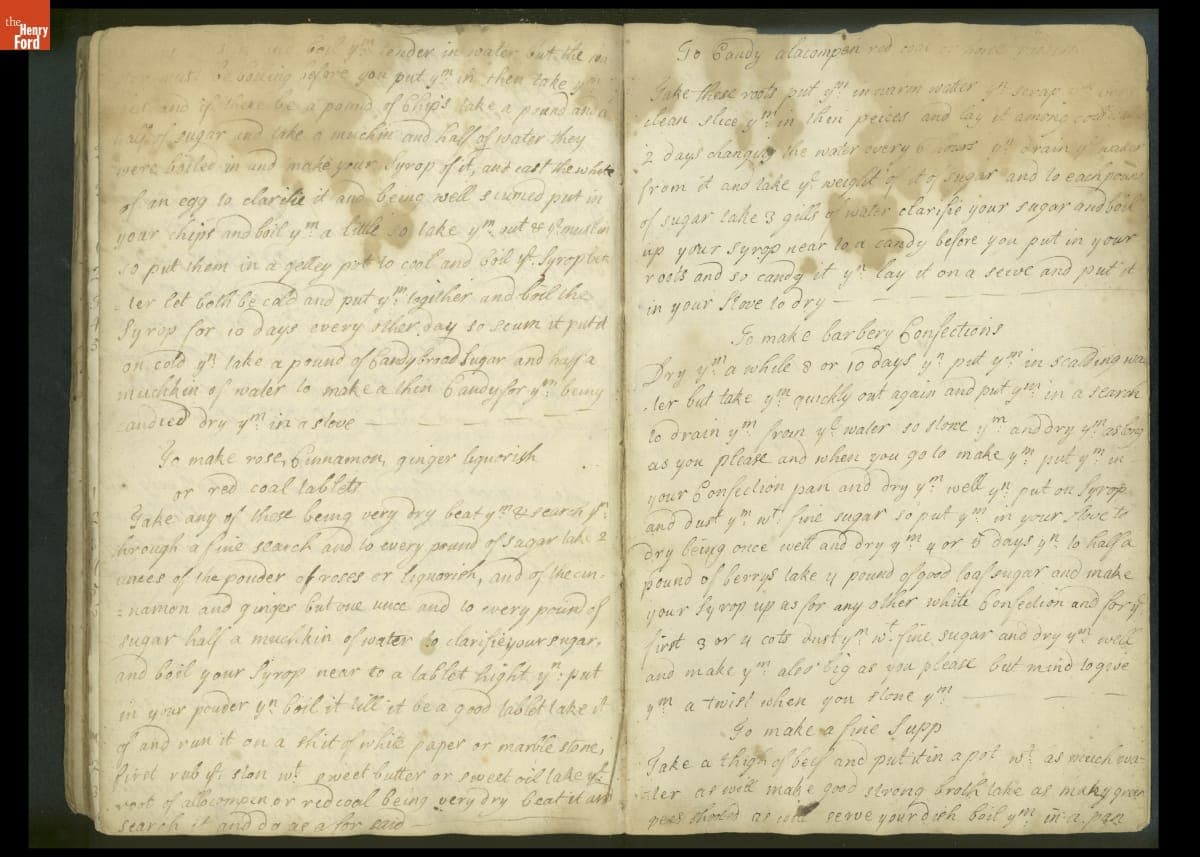 the Henry Ford
boil ym tender in water but the wa
ter must be boiling before you put ym in then take ym
and if there be a pound of Chips take a pound and a
half of sugar and take a muchkin and half of water they
were boiled in and make your Syrop of it, and cast the white
of an egg to clarifie it and being well scumed put in
your chips and boil ym a little so take ym out & ye muslin
so put them in a gelley pot to cool and boil ye Syrop bet
-ter let both be cold and put ym together and boil the
Syrop for 10 days every other day so scum it put it
on cold yn take a pound of Candy broad Sugar and half a
muchkin of water to make a thin Candy for ym being
candied dry ym in a stove
To make rose, Cinnamon, ginger liquorish
or red coal tablets
Take any of these being very dry beat ym & search ym
through a fine search and to every pound of sugar take 2
unces of the pouder of roses or liquorish, and of the cin-
-namon and ginger but one unce and to every pound of
sugar half a muchkin of water to clarifie your sugar,
and boil your Syrop near to a tablet hight yn put
in your pouder yn boil it till it be a good tablet take it
of and run it on a shit of white paper or marble stone,
first rub ye ston wt sweet butter or sweet oil take ye
root of allacompen or red coal being very dry beat it and
search it and do as a for said
To Candy alacompen red coal or
Take these roots put ym in warm water yn scrap ym very
clean slice ym in then peices and lay it among cold
2 days changing the water every 6 hours yn drain ye water
from it and take ye weight of it of sugar and to each pound
of sugar take 3 gills of water clarifie your sugar and boil
up your Syrop near to a candy before you put in your
roots and so candy it yn lay it on a seive and put it
in your stove to dry
To make barbery Confections
Dry ym a while 8 or 10 days yn put ym in scalding wa
-ter but take ym quickly out again and put ym in a search
to drain ym from ye water so stone ym and dry ym as long
as you please and when you go to make ym put ym in
your Confection pan and dry ym well yn put on Syrop
and dust ym wt fine sugar so put ym in your stove to
dry being once well and dry ym 4 or 5 days yn to half a
pound of berrys take 4 pound of good loaf sugar and make
your Syrop up as for any other white Confection and for ye
first 3 or 4 cots dust ym wt fine sugar and dry ym well
and make ym also big as you please but mind to give
ym a twist when you stone ym
To make a fine Supp
Take a thigh of beef and put it in a pot wt as much wa-
-ter as will make good strong broth take as many green
pees shooled as will serve your dish boil ym in a pan